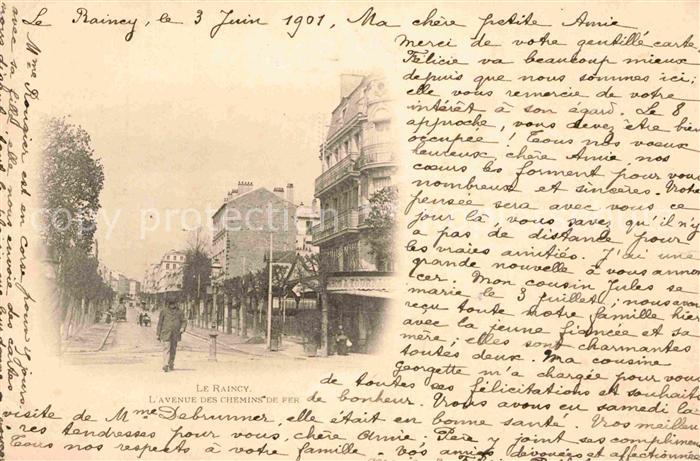 Le Raincy, le 3 Juin 1901, Ma chère petite Amie
Merci de votre gentille carte.
Félicie va beaucoup mieux
depuis que nous sommes ici;
elle vous remercie de votre
intérêt à son égard. Le 8
approche, vous devez être bien
occupée! Tous nos voeux
heureux chère Amie, nos
coeurs les forment pour vous
nombreux et sincères. Votre
pensée sera avec vous ce
jour là, vous savez qu'il n'y
a pas de distance pour
les vraies amitiés. J'ai une
grande nouvelle à vous annon
cer. Mon cousin Jules se
marie le 3 juillet; nous avons
reçu toute notre famille hier
avec la jeune fiancée et sa
mère; elles sont charmantes
toutes deux. Ma cousine
Georgette m'a chargée pour vous
de toutes ses félicitations et souhaits
de bonheur. Vous avons eu samedi la
visite de Mme Debrunner, elle était en bonne santé. Vos meilleu
res tendresses pour vous, chère Amie; Père y joint ses complimen
Tous nos respects à votre famille. Vos amies dévouées et affectionnées
Mme Rougier est en corse pour 15 jours
avec sa belle fille, nous envoie des cartes
LE RAINCY.
L'AVENUE DES CHEMINS DE FER
copyright protection